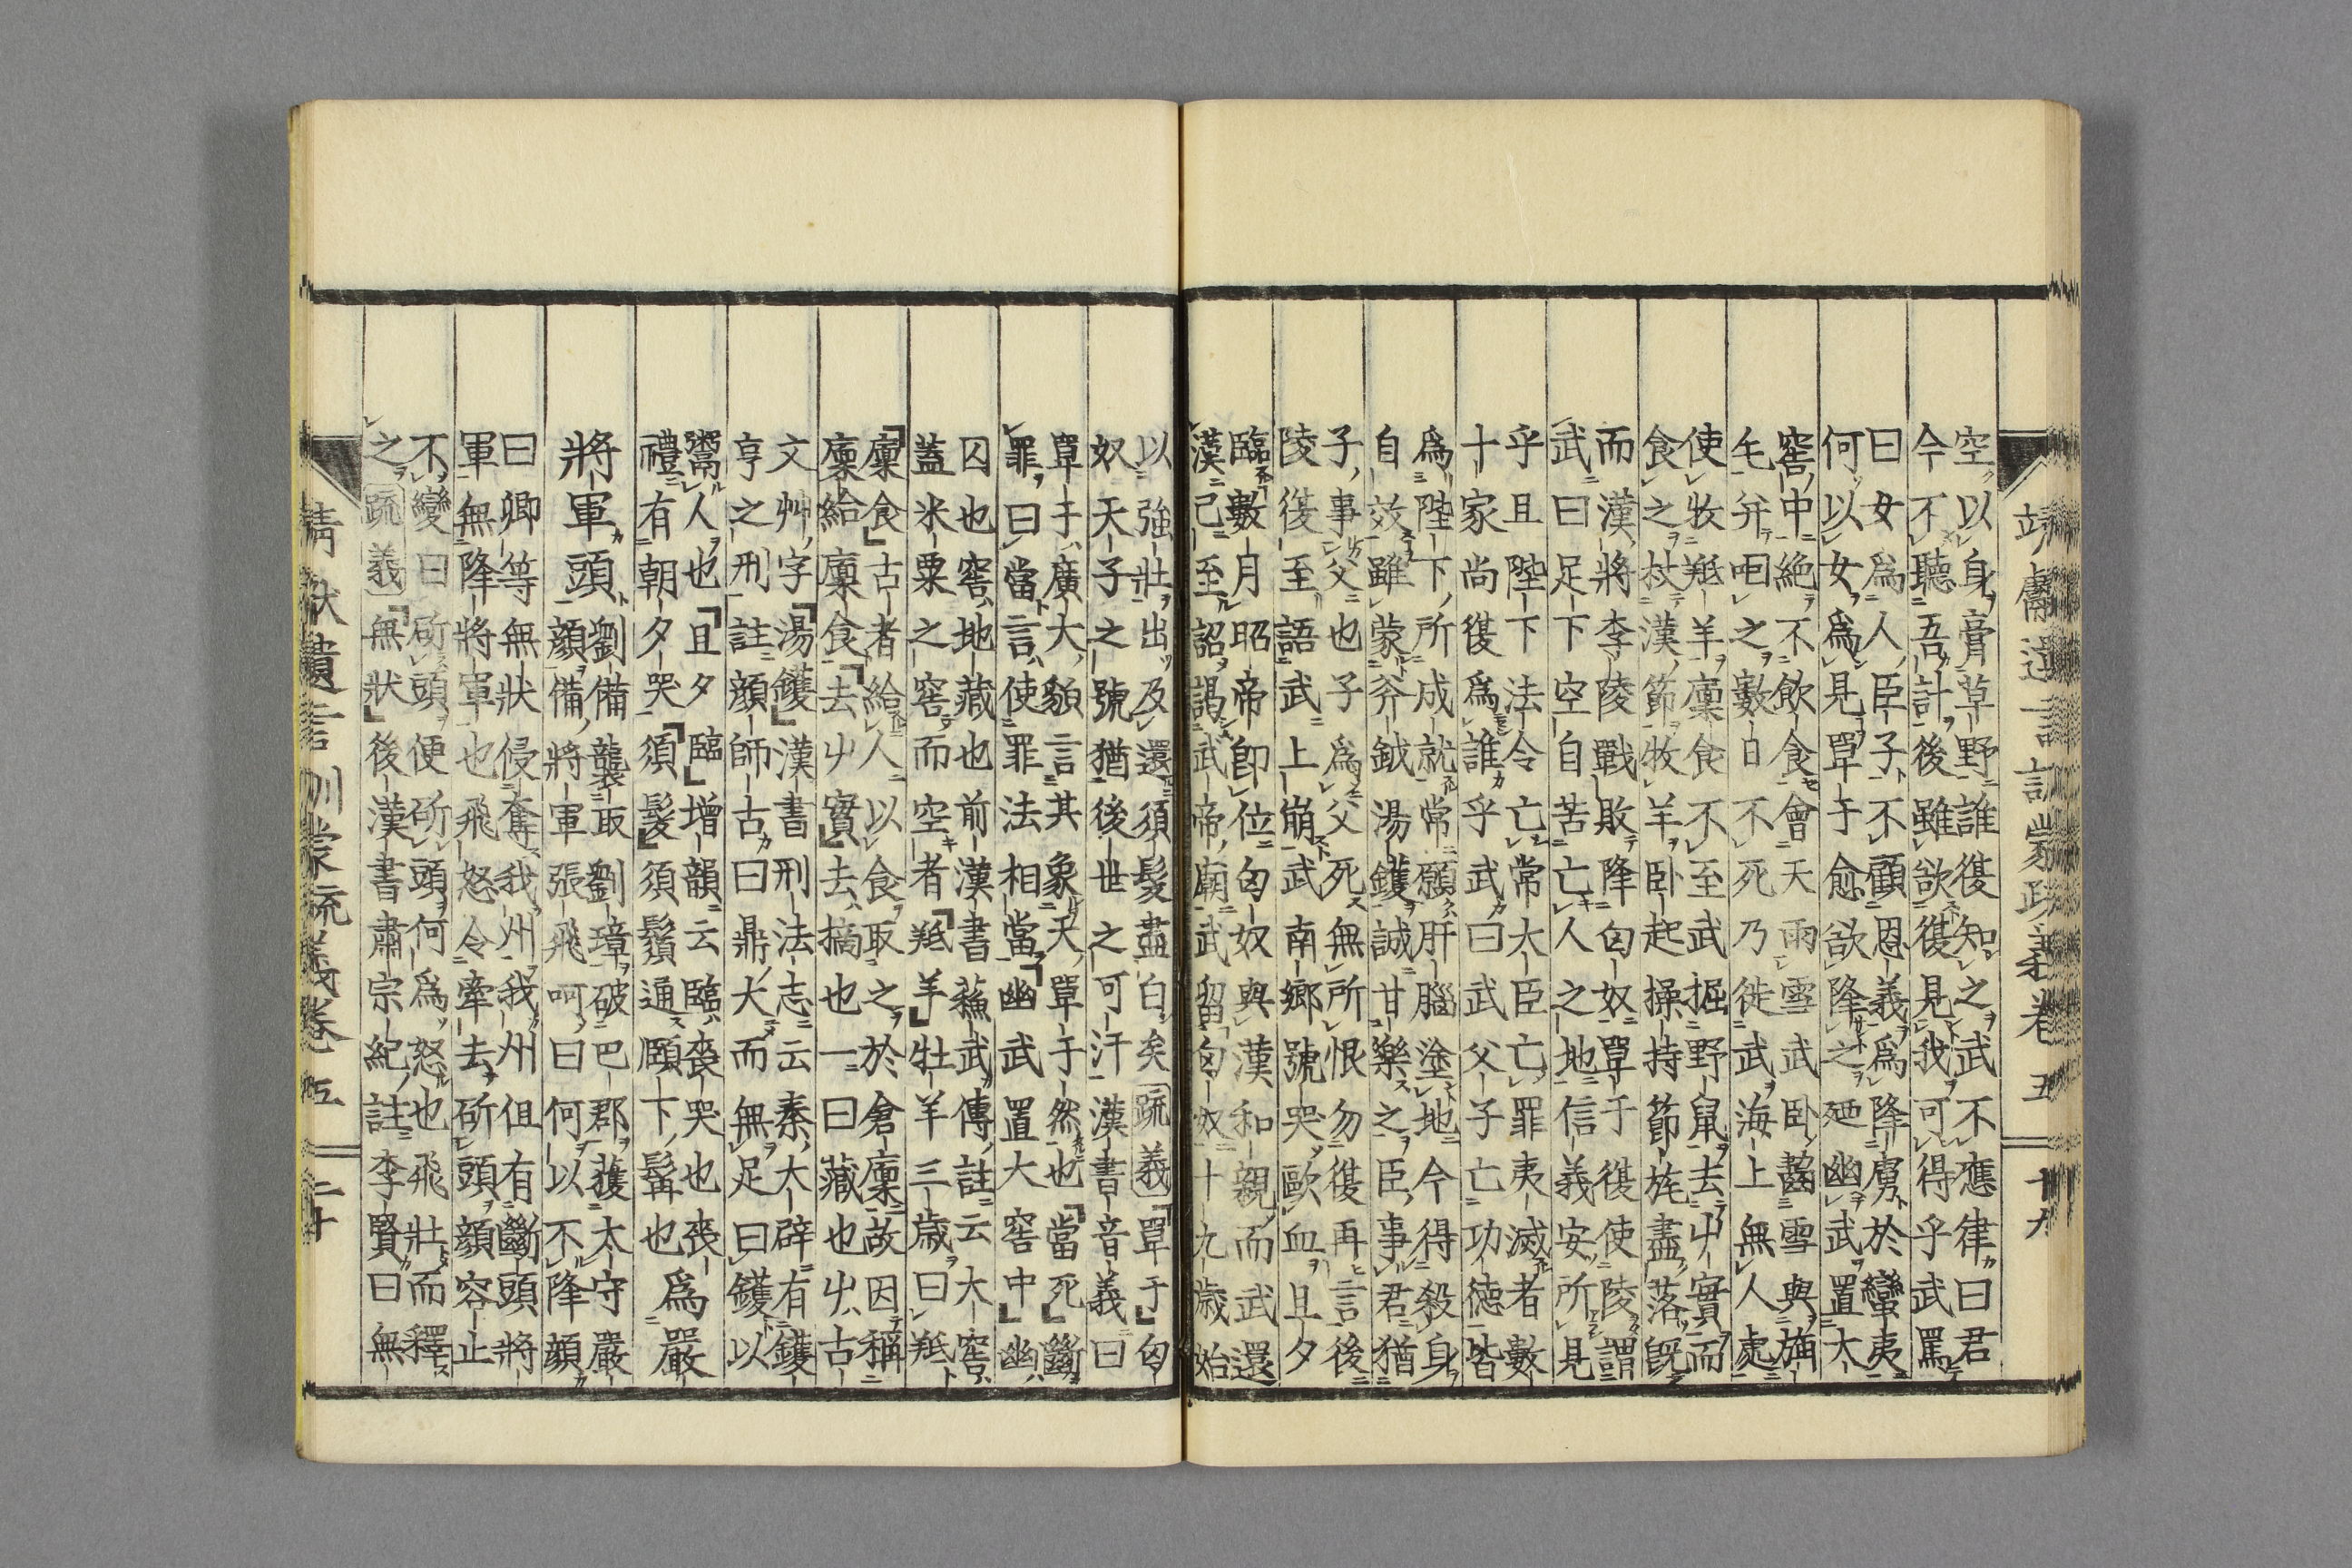 靖獻遺言訓蒙疏義卷五 十九
空以身膏草野誰復知之武不應律曰君
今不聽吾計後雖欲復見我可得乎武罵
曰女爲人臣子不顧恩義爲降虜於蠻夷
何以女爲見單于愈欲降之廼幽武置大
窖中絶不飮食會天雨雪武卧齧雪與旃
毛幷咽之數日不死乃徙武海上無人處
使牧羝羊廩食不至武掘野鼠去屮實而
食之杖漢節牧羊卧起操持節旄盡落旣
而漢將李陵戰敗降匈奴單于復使陵謂
武曰足下空自苦亡人之地信義安所見
乎且陛下法令亡常大臣亡罪夷滅者數
十家尚復爲誰乎武曰武父子亡功德皆
爲陛下所成就常願肝腦塗地今得殺身
自效雖蒙斧鉞湯鑊誠甘樂之臣事君猶
子事父也子爲父死無所恨勿復再言後
陵復至語武上崩武南鄉號哭歐血旦夕
臨數月昭帝卽位匈奴與漢和親而武還
漢已至詔謁武帝廟武留匈奴十九歲始
以強壯出及還須髮盡白矣疏義單于匈
奴天子之號猶後世之可汗漢書音義曰
單于廣大貌言其象天單于然也當死斷
罪曰當言使罪法相當幽武置大窖中幽
囚也窖地藏也前漢書蘇武傳註云大窖
蓋米粟之窖而空者羝羊牡羊三歲曰羝
廩食古者給人以食取之於倉廩故因稱
廩給廩食去屮實去擿也一曰藏也屮古
文艸字湯鑊漢書刑法志云秦大辟有鑊
亨之刑註顏師古曰鼎大而無足曰鑊以
鬻人也旦夕臨增韻云臨喪哭也喪
禮有朝夕哭須髮須鬚通頤下鬍也爲嚴
將軍頭劉備襲取劉璋破巴郡獲太守嚴
顏備將軍張飛呵曰何以不降顏
曰卿等無狀侵奪我州我州但有斷頭將
軍無降將軍也飛怒令牽去斫頭顏容止
不變曰斫頭便斫頭何爲怒也飛壯而釋
之疏義無狀後漢書肅宗紀註李賢曰無
靖獻遺言訓蒙疏義卷五 二十